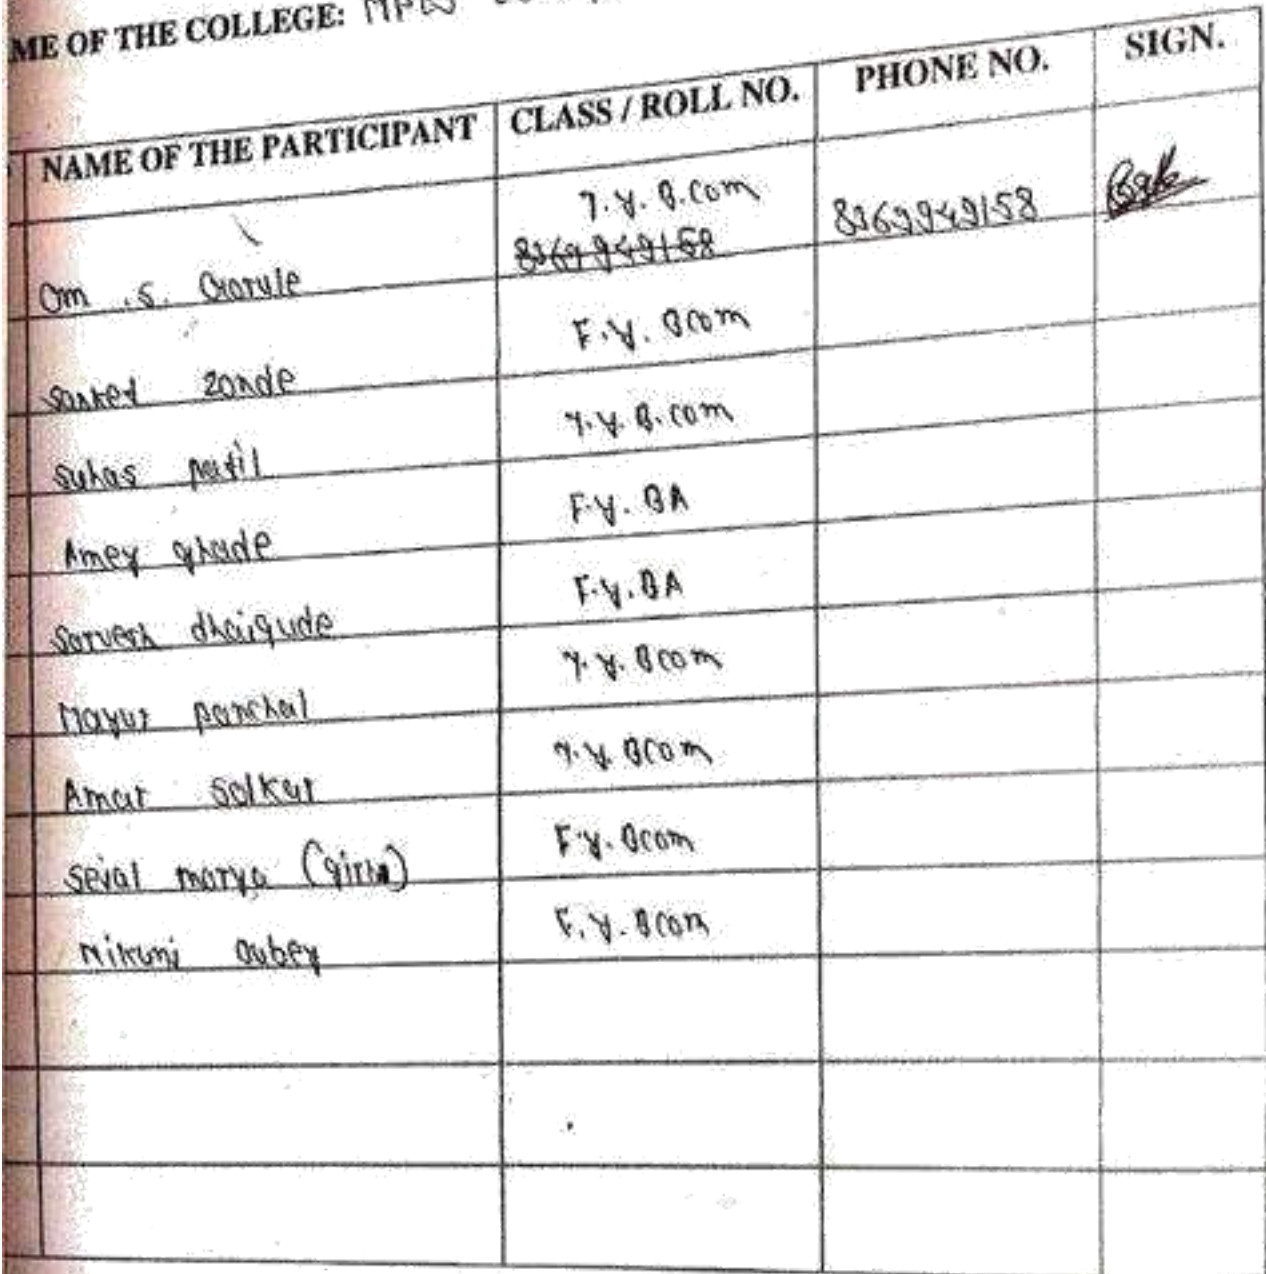 ME OF THE COLLEGE:
NAME OF THE PARTICIPANT CLASS / ROLL NO. PHONE NO. SIGN.
T.Y. B.com
Om .S. Garule 8369949158 8369949158
sanket zonde F.Y. Bcom
suhas patil T.Y. B.com
Amey ghade F.Y. BA
sarvesh dhaigude F.Y. BA
Mayur panchal T.Y. Bcom
Amar solkar T.Y. Bcom
marya (girls) F.Y. Bcom
dubey F.Y. Bcom